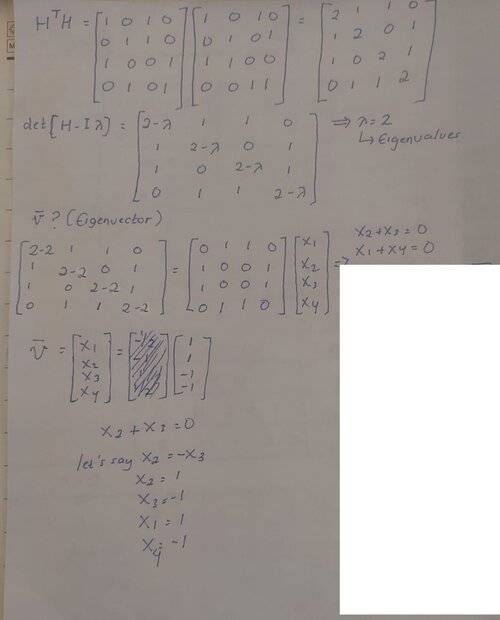 HᵀH = [1 0 1 0; 0 1 1 0; 1 0 0 1; 0 1 0 1] [1 0 1 0; 0 1 0 1; 1 1 0 0; 0 0 1 1] = [2 1 1 0; 1 2 0 1; 1 0 2 1; 0 1 1 2]
det[H-Iλ] = [2-λ 1 1 0; 1 2-λ 0 1; 1 0 2-λ 1; 0 1 1 2-λ] ⇒ λ=2
↳ Eigenvalues
v̄ ? (Eigenvector)
[2-2 1 1 0; 1 2-2 0 1; 1 0 2-2 1; 0 1 1 2-2] = [0 1 1 0; 1 0 0 1; 1 0 0 1; 0 1 1 0] [x₁; x₂; x₃; x₄] ⇒ x₂+x₃=0
x₁+x₄=0
v̄ = [x₁; x₂; x₃; x₄] = [1; 1; -1; -1]
x₂+x₃=0
let's say x₂=-x₃
x₂=1
x₃=-1
x₁=1
x₄=-1